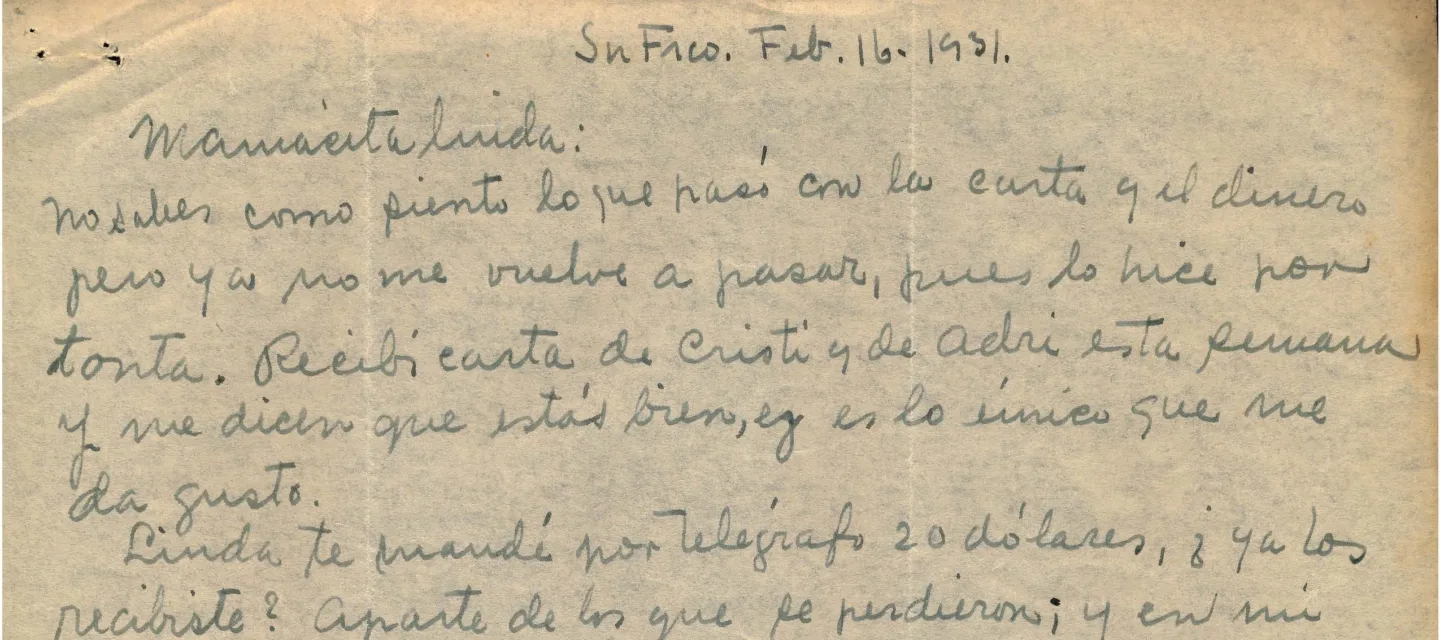 Sn Frco. Feb. 16. 1931.
Mamácita linda:
no sabes como siento lo que pasó con la carta y el dinero
pero ya no me vuelve a pasar, pues lo hice por
tonta. Recibí carta de Cristi y de Adri esta semana
y me dicen que estás bien, y es lo único que me
da gusto.
Linda te mandé por telégrafo 20 dólares, ¿ ya los
recibiste? Aparte de los que se perdieron; y en mi